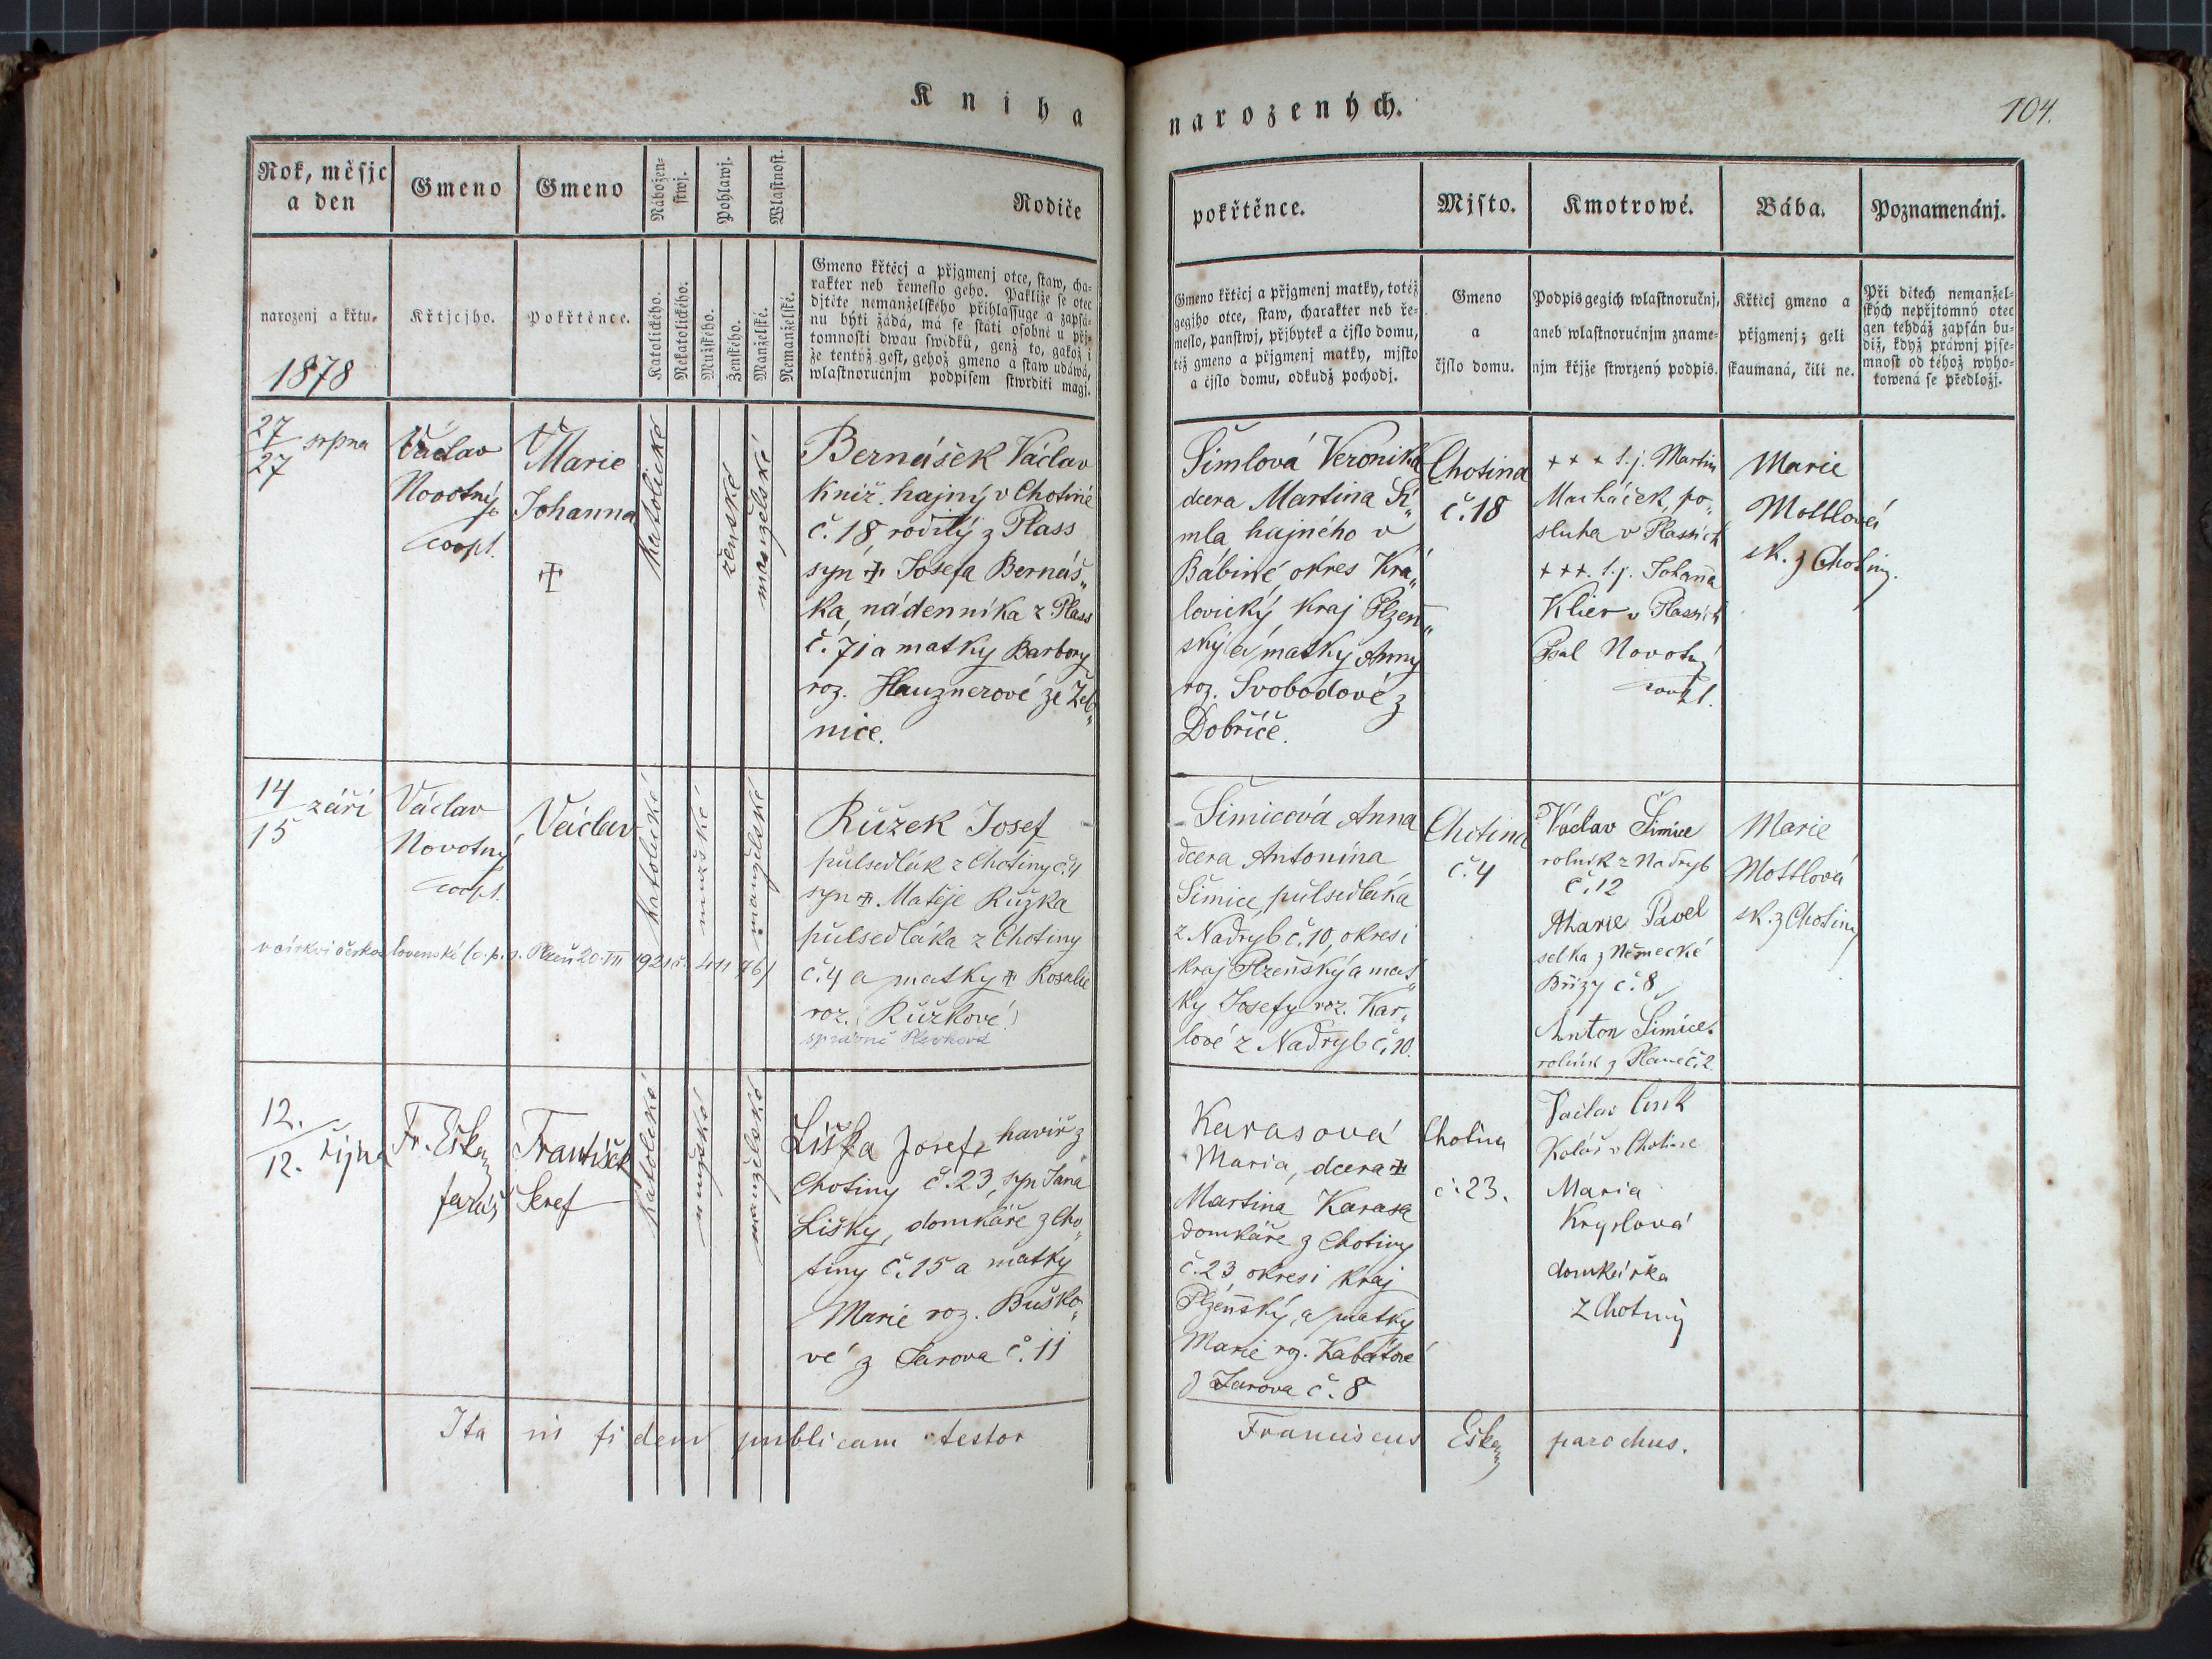 Kniha
narozených.
104.
Rok, měsjc
a den
Gmeno
Gmeno
Nábožen-
stwj.
Pohlawj.
Wlastnost.
Rodiče
narozenj a křtu.
1878
Křtjcjho.
Pokřtěnce.
Katolického.
Nekatolického.
Mužského.
Ženského.
Manželské.
Nemanželské.
Gmeno křtěcj a přjgmenj otce, staw, cha-
rakter neb řemeslo geho. Pakliže se otec
djtěte nemanželského přihlassuge a zapsá-
nu býti žádá, má se státi osobně u přj-
tomnosti dwau swědků, genž to, gakož i
že tentýž gest, gehož gmeno a staw udáwá,
wlastnoručnjm podpisem stwrditi magj.
27
27
srpna
Václav
Novotný
coopt.
Marie
Johanna
katolické
ženské
manželské
Bernášek Václav
kníž. hajný v Chotině
č. 18 rodilý z Plass
syn Josefa Bernáš„
ka, nádenníka z Plass
č. 71 a matky Barbory
roz. Hauznerové ze Žeb„
nice.
14
15
září
Václav
Novotný
coopt.
Václav
katolické
mužské
manželské
Růžek Josef
půlsedlák z Chotiny č. 4
syn Matěje Růžka
půlsedláka z Chotiny
č. 4 a matky Rosalie
roz. (Růžkové)
správně
12.
12.
října
Fr. Eška
farář
František
Seref
katolické
mužské
manželské
Liška Josef, havíř z
Chotiny č. 23, syn Jana
Lišky, domkáře z Cho„
tiny č. 15 a matky
Marie roz. Buško„
vé z Jarova č. 11
Ita in fidem publicam testor
pokřtěnce.
Mjsto.
Kmotrowé.
Bába.
Poznamenánj.
Gmeno křtěcj a přjgmenj matky, totéž
gegjho otce, staw, charakter neb ře-
meslo, panstwj, přjbytek a čjslo domu,
též gmeno a přjgmenj matky, mjsto
a čjslo domu, odkudž pochodj.
Gmeno
a
čjslo domu.
Podpis gegich wlastnoručnj,
aneb wlastnoručnjm zname-
njm křjže stwrzený podpis.
Křtěcj gmeno a
přjgmenj; geli
skaumaná, čili ne.
Při dětech nemanžel-
ských nepřjtomný otec
gen tehdáž zapsán bu-
diž, když práwnj pjse-
mnost od téhož wyho-
towená se předložj.
Šimlová Veronika
dcera Martina Ši„
mla hajného v
Bábině, okres Kra„
lovický, kraj Plzeň„
ský a matky Anny
roz. Svobodové z
Dobříče.
Chotina
č. 18
+ + + s. j. Martin
Macháček, po„
sluha v Plassích
+ + +. s. j. Johanna
Klier v Plassích
Psal Novotný
coopt.
Marie
Mottlová
zk. z Chotiny.
Šimicová Anna
dcera Antonína
Šimice, půlsedláka
z Nadryb č. 10, okres i
kraj Plzeňský a mat„
ky Josefy roz. Kar„
lové z Nadryb č. 10.
Chotina
č. 4
Václav Šimice
rolník z Nadryb
č. 12
Marie Pavel
selka z Německé
Břízy č. 8
Anton Šimice.
rolník z Plané č. 2
Marie
Mottlová
zk. z Chotiny
Karasová
Maria, dcera
Martina Karasa
domkáře z Chotiny
č. 23, okres i kraj
Plzeňský, a matky
Marie roz. Kabátové
z Jarova č. 8
Chotina
č. 23.
Václav
Kolář v Chotině
Maria
Kryslová
domkářka
z Chotiny
Franciscus Eška parochus.